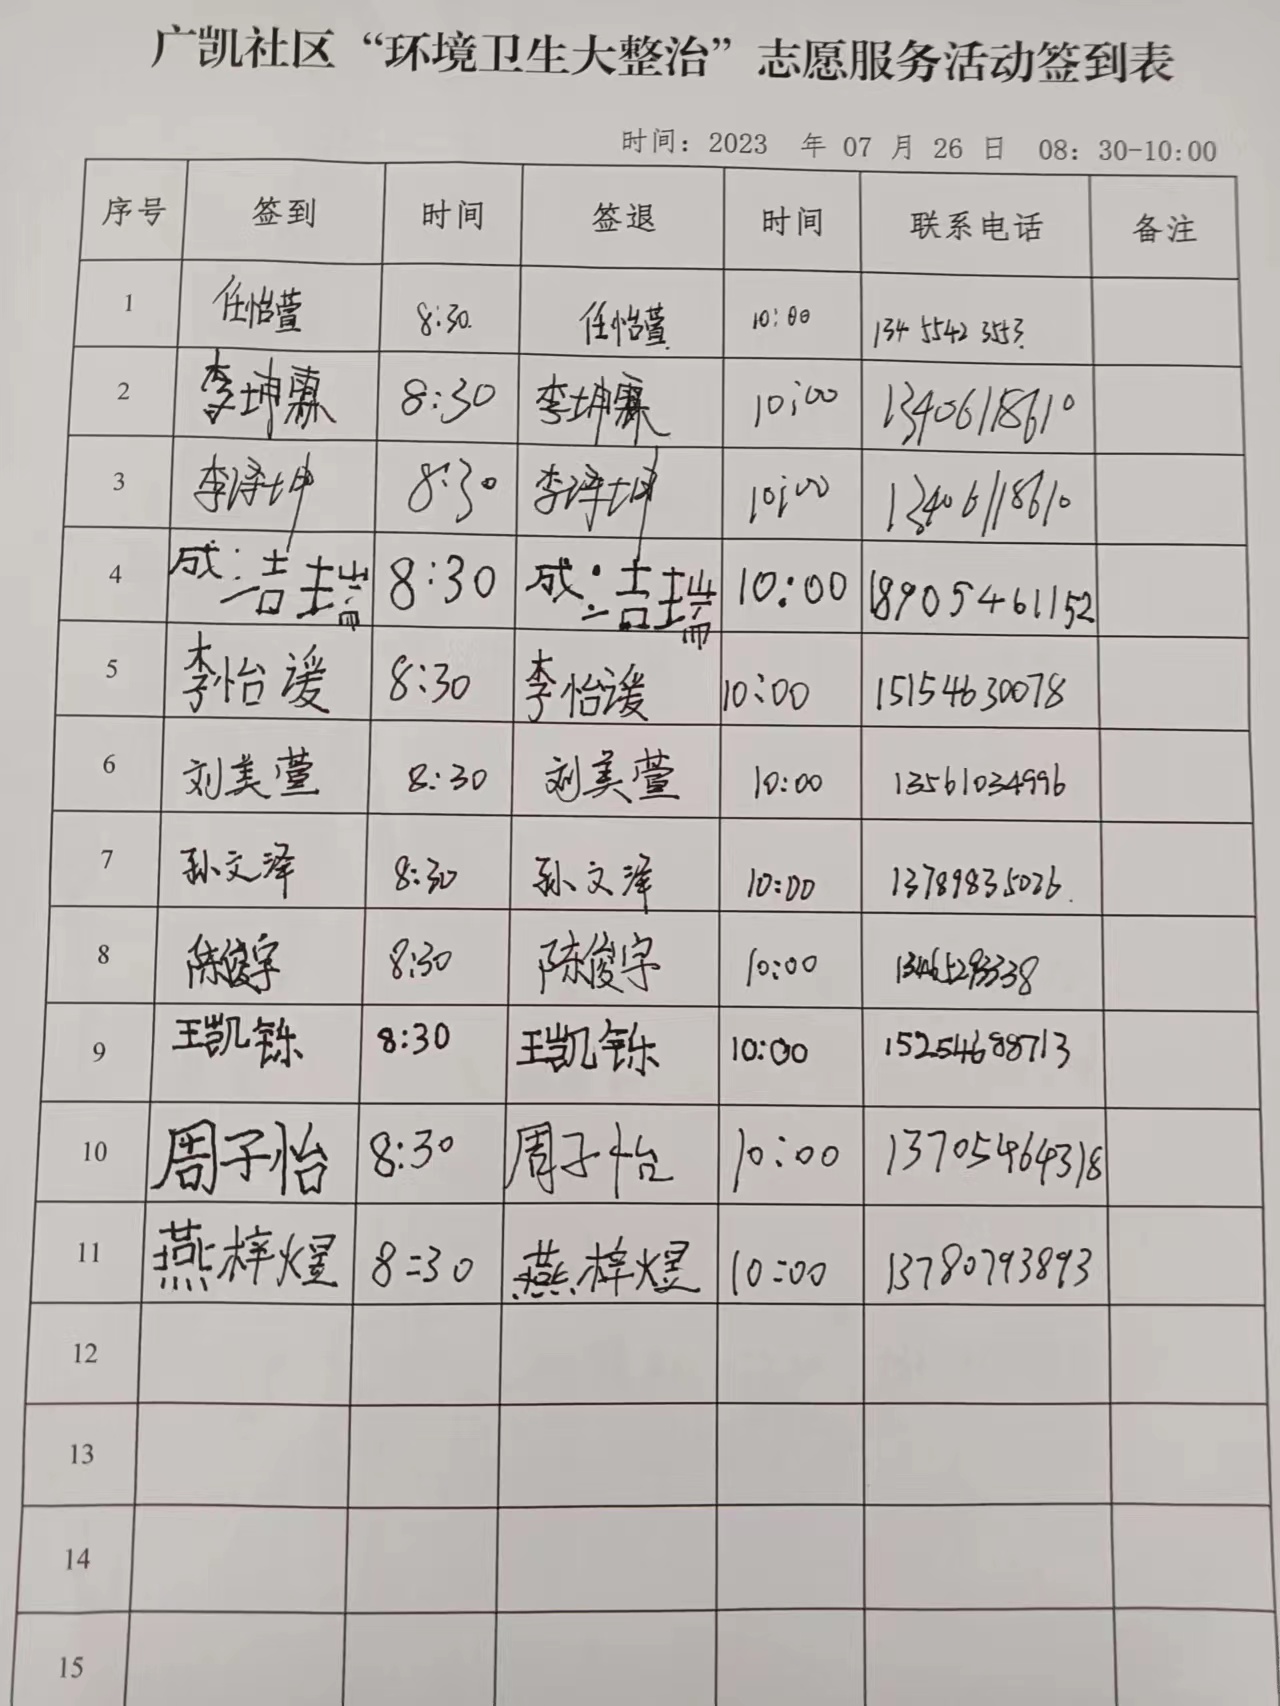 广凯社区“环境卫生大整治”志愿服务活动签到表
时间：2023 年 07 月 26 日 08：30-10:00
序号 签到 时间 签退 时间 联系电话 备注
1 任怡萱 8:30. 任怡萱 10:00 134 5542 3553.
2 李坤霖 8:30 李坤霖 10:00 13406118610
3 李浡坤 8:30 李浡坤 10:00 13406118610
4 成洁瑞 8:30 成洁瑞 10:00 18905461152
5 李怡谖 8:30 李怡谖 10:00 15154630078
6 刘美萱 8:30 刘美萱 10:00 13561034996
7 孙文泽 8:30 孙文泽 10:00 13789835026.
8 陈俊宇 8:30 陈俊宇 10:00 13465293338
9 王凯铄 8:30 王凯铄 10:00 15254688713
10 周子怡 8:30 周子怡 10:00 13705464318
11 燕梓煜 8:30 燕梓煜 10:00 13780793893
12
13
14
15